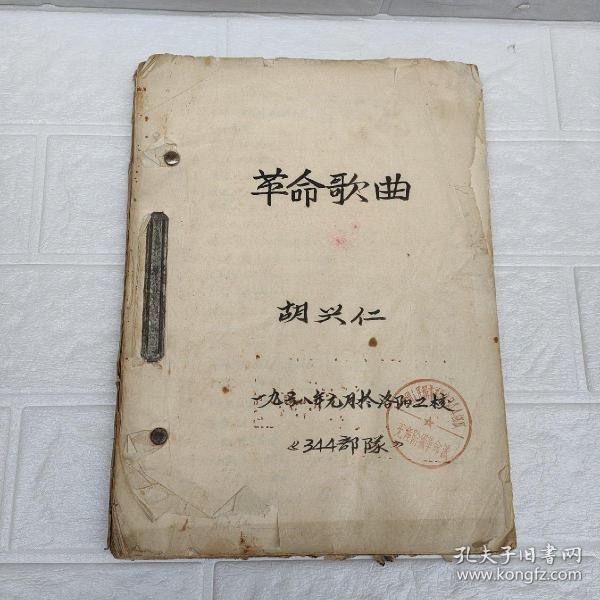 革命歌曲
胡兴仁
一九五八年元月於洛阳工校
《344部隊》
孔夫子旧書网
www.kongfz.com